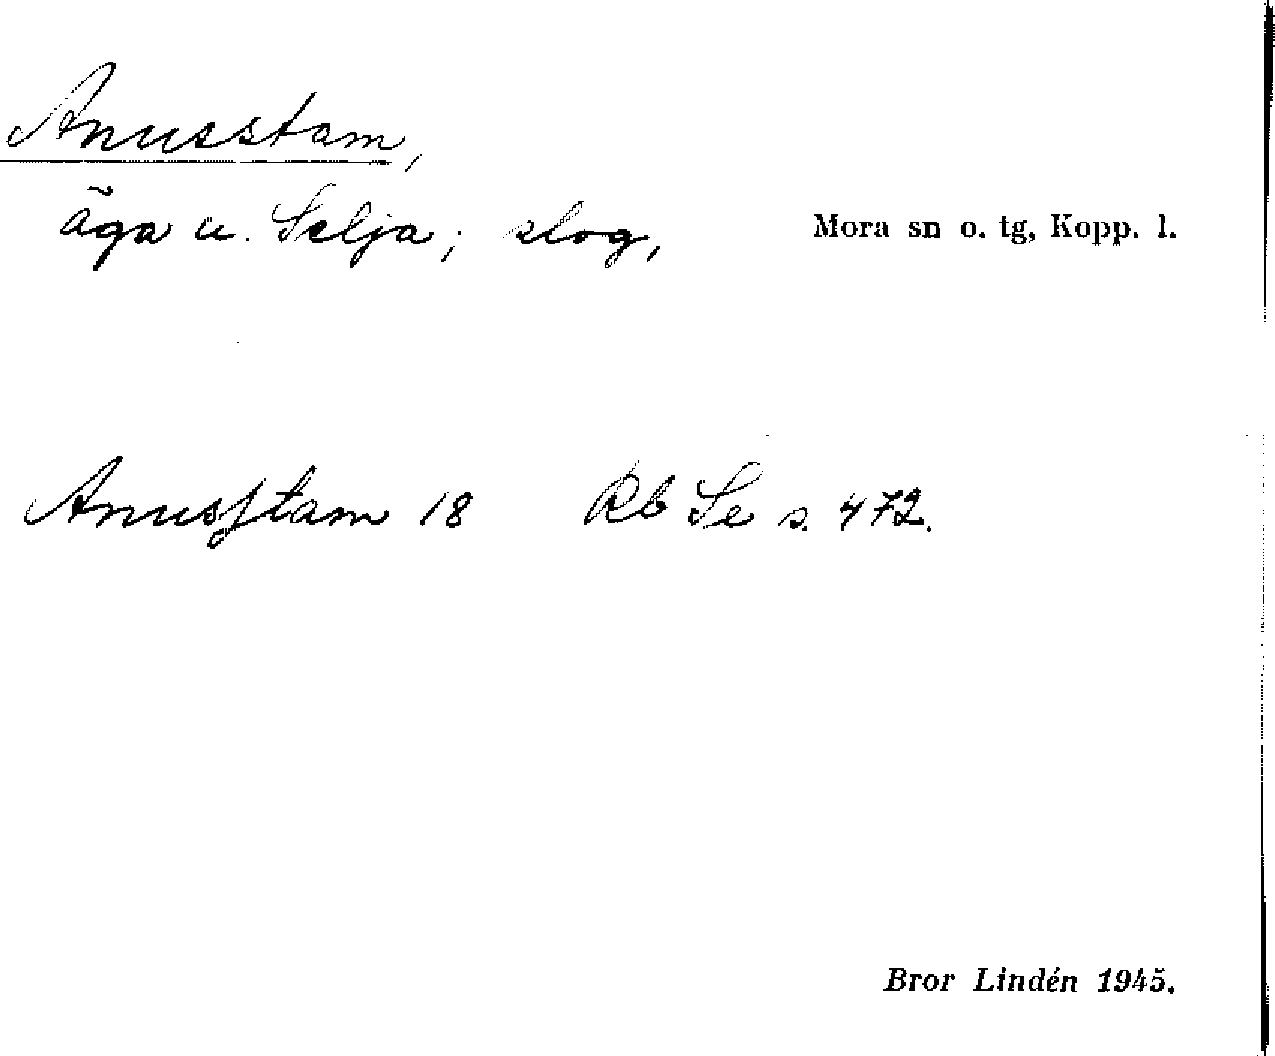 Anusstam,
äga u. Selja; slog,
Mora sn o. tg, Kopp. l.
Anusstam 18 Rb Se s. 472.
Bror Lindén 1945.